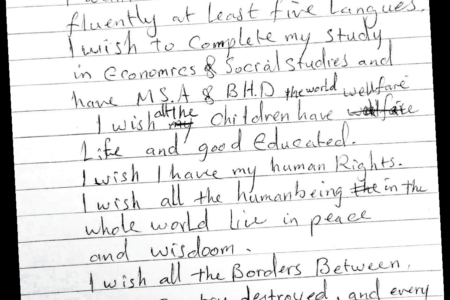 fluently at least five Langues.
I wish to Complete my study
in Economics & Social studies and
have M S.A & B H.D the world wellfare
I wish all the children have
Life and good educated.
I wish I have my human Rights.
I wish all the humanbeing in the
whole world live in peace
and wisdoom.
I wish all the Borders Between,
destroyed, and every